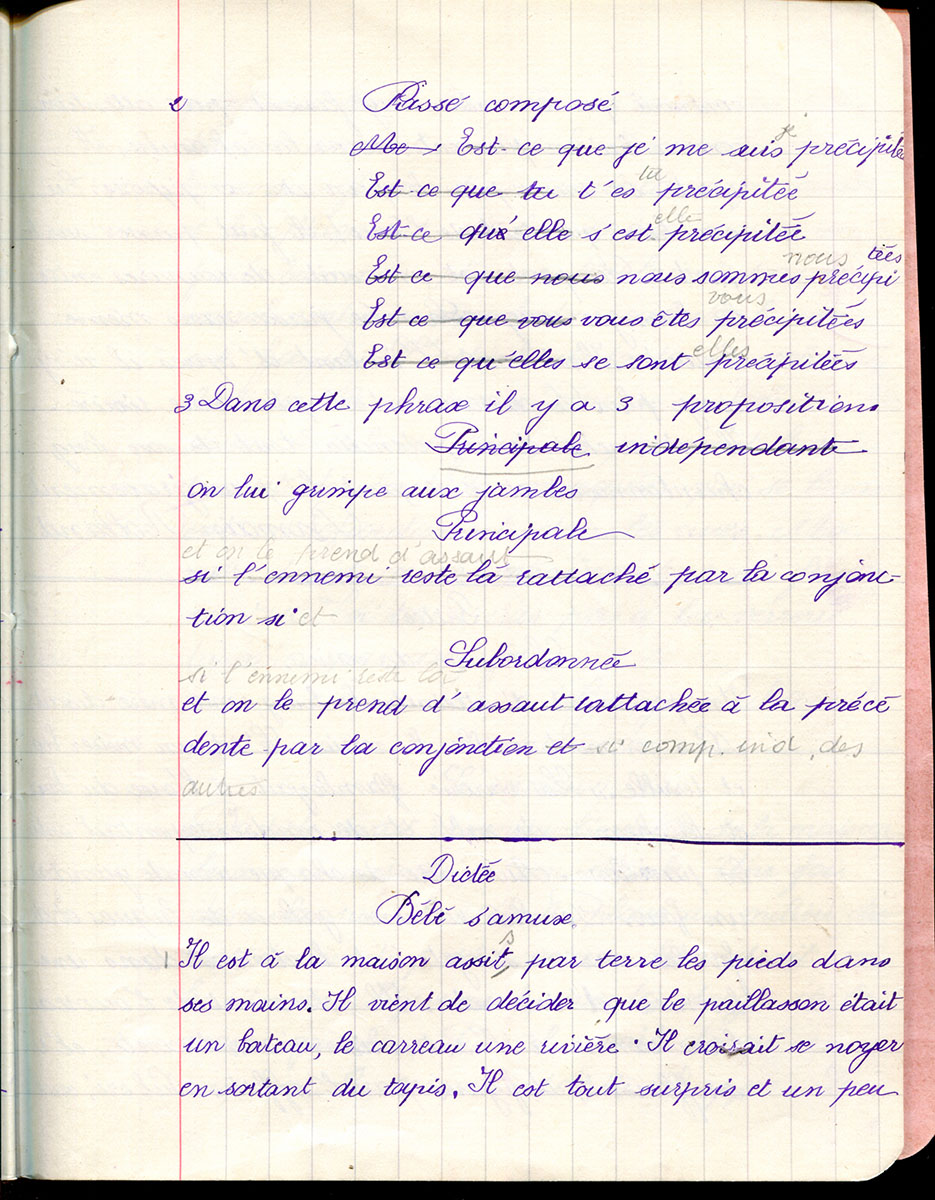 2 Passé composé
Me Est-ce que je me suis je précipitée
Est ce que tu t'es tu précipitée
Est-ce qu'elle s'est elle précipitée
Est ce que nous nous sommes nous précipi
tées
Est ce que vous vous êtes vous précipitées
Est ce qu'elles se sont elles précipitées
3 Dans cette phrase il y a 3 propositions
Principale indépendante
on lui grimpe aux jambes
Principale
et on le prend d'assaut
si l'ennemi reste là rattaché par la conjonc-
tion si et
Subordonnée
si l'ennemi reste là
et on le prend d'assaut rattachée à la précé
dente par la conjonction et si comp. ind. des
autres
Dictée
Bébé s'amuse.
Il est à la maison assit s par terre les pieds dans
ses mains. Il vient de décider que le paillasson était
un bateau, le carreau une rivière. Il croirait se noyer
en sortant du tapis. Il est tout surpris et un peu